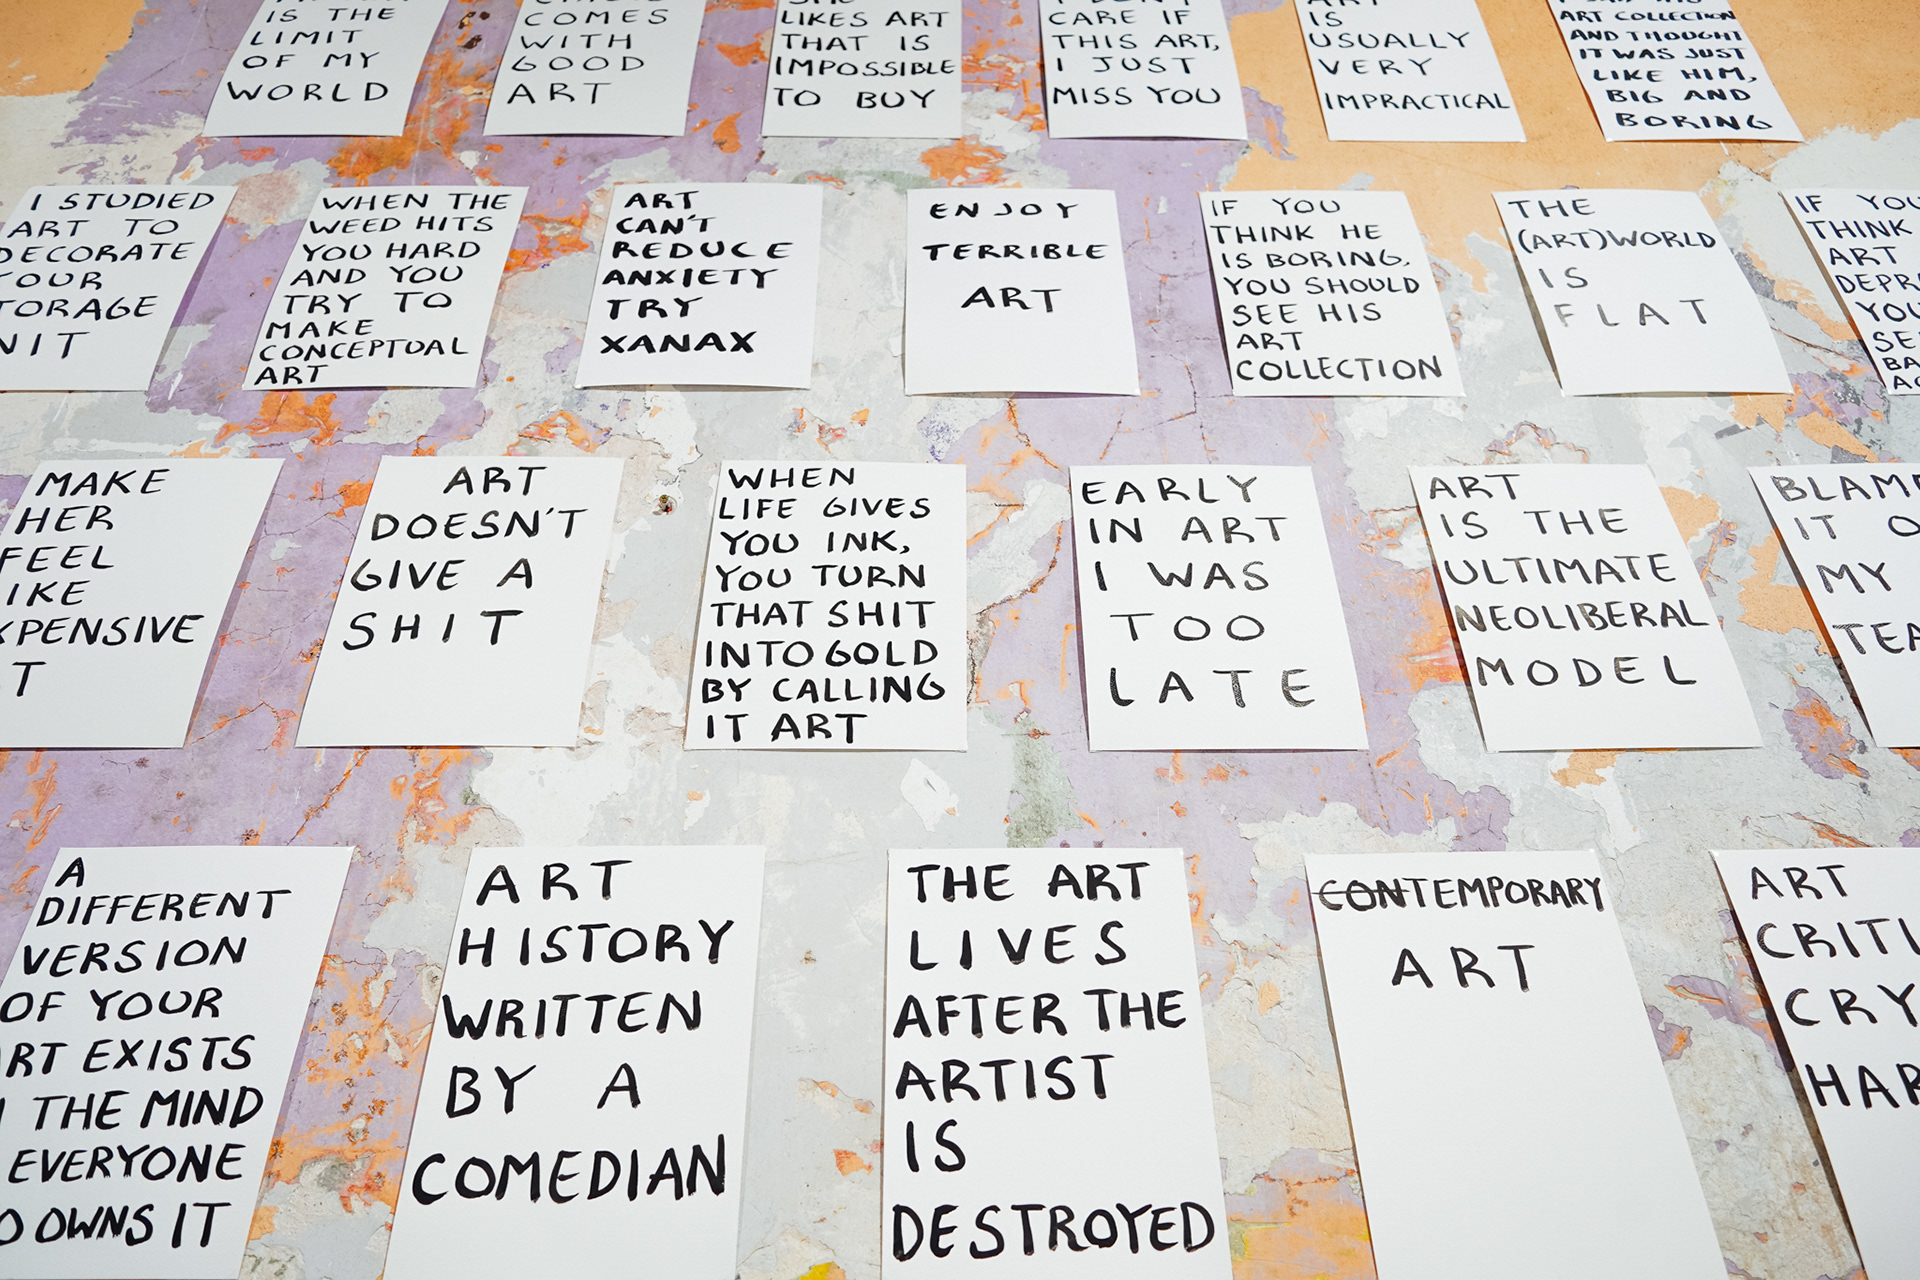 IS THE
LIMIT
OF MY
WORLD
COMES
WITH
GOOD
ART
LIKES ART
THAT IS
IMPOSSIBLE
TO BUY
CARE IF
THIS ART,
I JUST
MISS YOU
ART
IS
USUALLY
VERY
IMPRACTICAL
ART COLLECTION
AND THOUGHT
IT WAS JUST
LIKE HIM,
BIG AND
BORING
I STUDIED
ART TO
DECORATE
YOUR
STORAGE
UNIT
WHEN THE
WEED HITS
YOU HARD
AND YOU
TRY TO
MAKE
CONCEPTUAL
ART
ART
CAN'T
REDUCE
ANXIETY
TRY
XANAX
ENJOY
TERRIBLE
ART
IF YOU
THINK HE
IS BORING,
YOU SHOULD
SEE HIS
ART
COLLECTION
THE
(ART)WORLD
IS
FLAT
IF YOU
THINK
ART
MAKE
HER
FEEL
LIKE
EXPENSIVE
ART
DOESN'T
GIVE A
SHIT
WHEN
LIFE GIVES
YOU INK,
YOU TURN
THAT SHIT
INTO GOLD
BY CALLING
IT ART
EARLY
IN ART
I WAS
TOO
LATE
ART
IS THE
ULTIMATE
NEOLIBERAL
MODEL
BLAME
IT
MY
A
DIFFERENT
VERSION
OF YOUR
ART EXISTS
THE MIND
EVERYONE
OWNS IT
ART
HISTORY
WRITTEN
BY A
COMEDIAN
THE ART
LIVES
AFTER THE
ARTIST
IS
DESTROYED
CONTEMPORARY
ART
ART
CRY